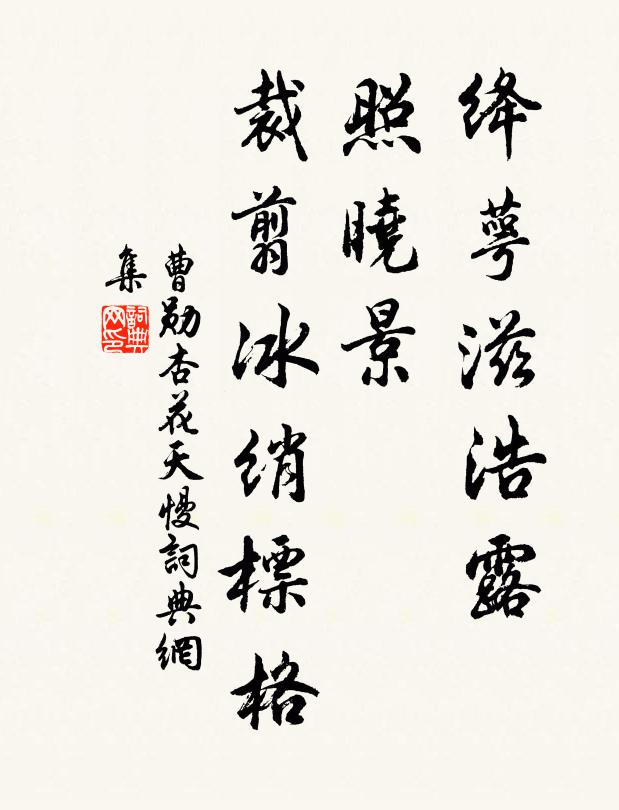 絳萼滋浩露
照曉景
裁剪冰綃標格
曹勛杏花天慢詞典網
集
詞典
网印